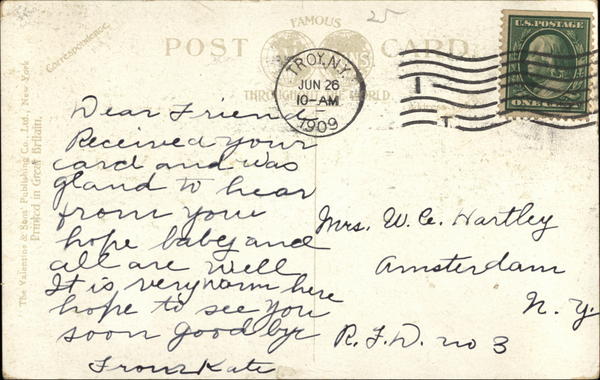 FAMOUS
POST CARD
THROUGHOUT THE WORLD
Correspondence.
The Valentine & Sons' Publishing Co., Ltd., New York
Printed in Great Britain.
25
TROY, N.Y.
JUN 26
10-AM
1909
U.S. POSTAGE
Dear Friend
Received your
card and was
gland to hear
from your
hope baby and
all are well
It is very warm here
hope to see you
soon good bye
From Kate
Mrs. W. C. Hartley
Amsterdam
N. Y.
R. F. D. no 3